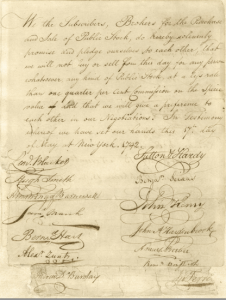 We the Subscribers, Brokers for the Purchase
and Sale of Public Stock, do hereby solemnly
promise and pledge ourselves to each other, that
we will not buy or sell from this day for any person
whatsoever, any kind of Public Stock, at a less rate
than one quarter per Cent Commission on the Specie
value & that we will give a preference to
each other in our Negotiations. In Testimony
whereof we have set our hands this 17th day
of May at New York. 1792
Leond Bleecker
Hugh Smith
Armstrong & Barnewall
Bernard Hart
Alex Zuntz
Sutton & Hardy
Benjn Seixas
John Henry
John A Hardenbrook
Amos Beebe